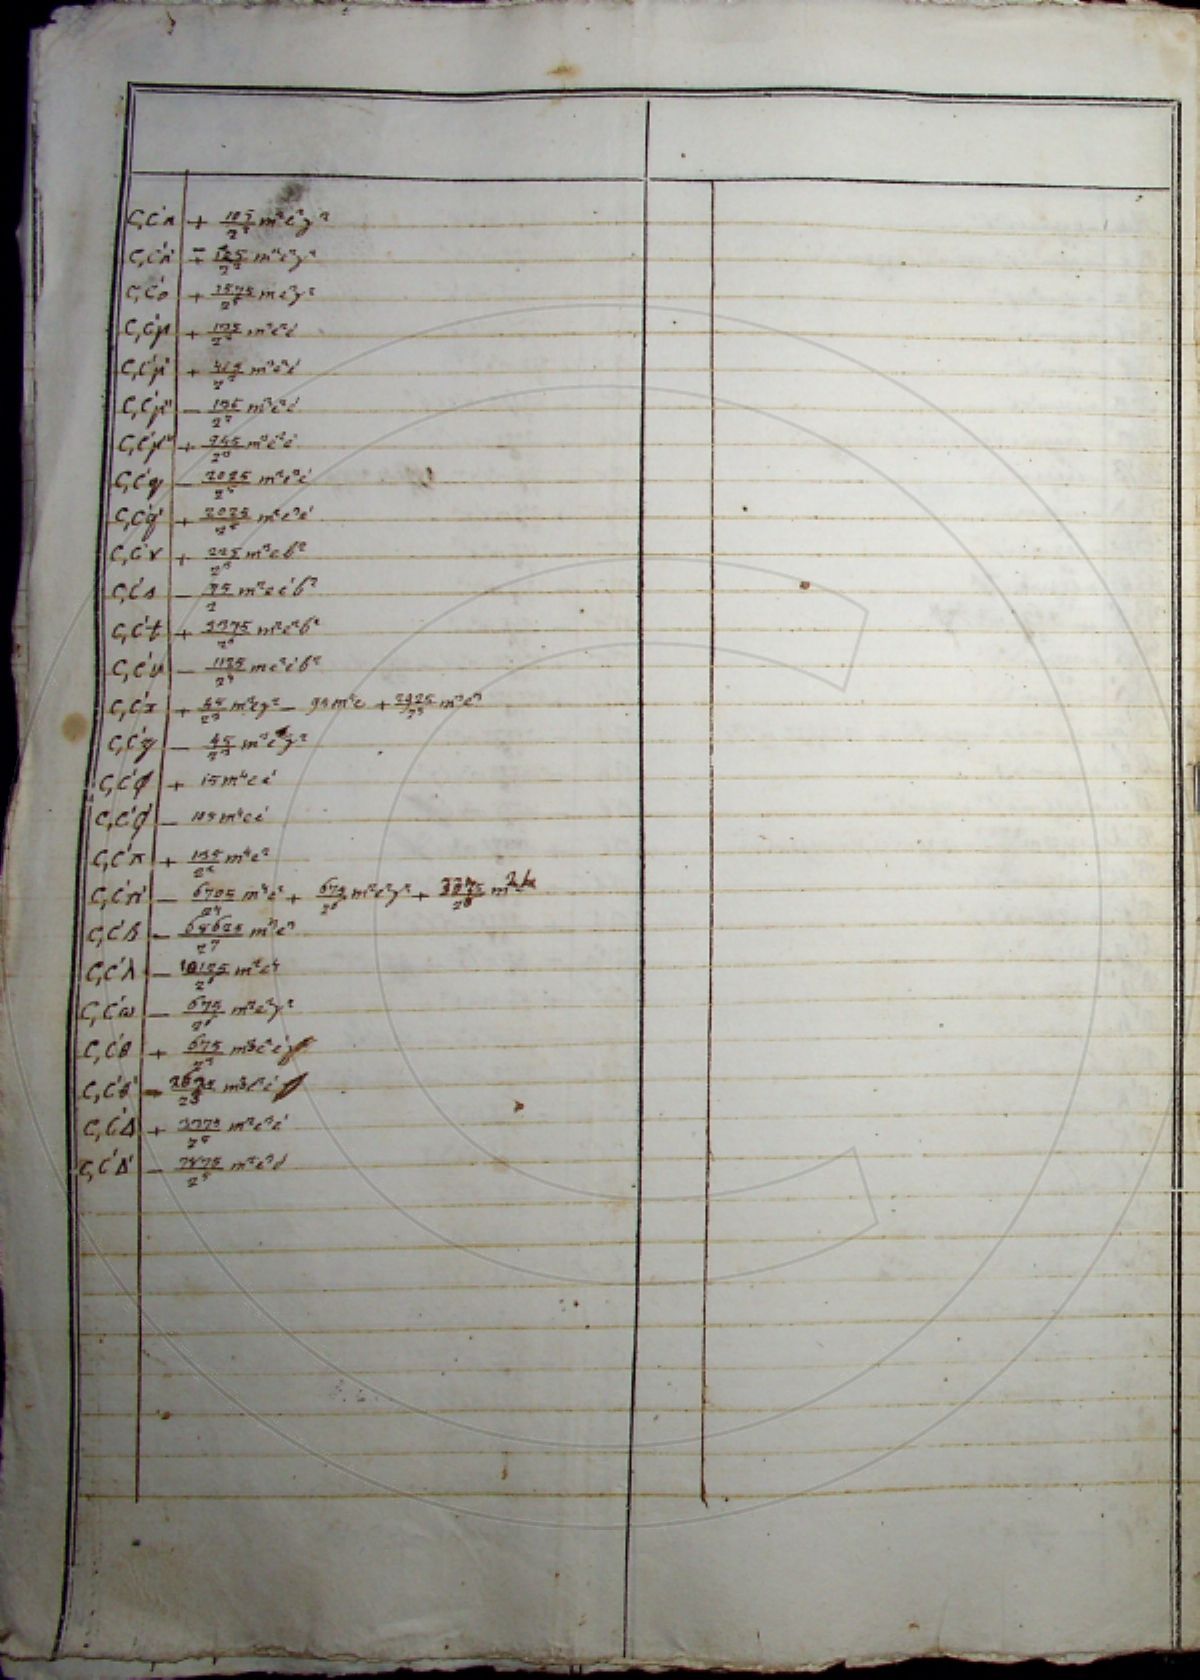 C,C'n + 105/2² m²e²γ²
C,C'n' ∓ 125/2² m²e²γ²
C,C'o + 1575/2⁵ me²γ²
C,C'μ + 135/2² m²e²e'
C,C'μ' + m²e²e'
C,C'μ'' − 135/2² m²e²e'
C,C'μ''' + 945/2³ m²e²e'
C,C'q − 2025/2⁵ m²e²e'
C,C'q' + 2025/2⁵ m²e²e'
C,C'r + 225/2³ m²eb²
C,C's − 75/2 m²ee'b²
C,C't + 3375/2⁶ m²e²b²
C,C'u − 1125/2⁴ me²e'b²
C,C'x + 45/2³ m²eγ² − m²e + 2925/2⁵ m²e³
C,C'y − 45/2³ m²e²γ²
C,C'φ + 15m⁴ee'
C,C'φ' − 105m⁴ee'
C,C'π + 135/2² m⁴e²
C,C'π' − 6705/2⁴ m⁴e² + 675/2⁶ m²e²γ² + 3375/2⁸ m²
C,C'β − 65625/2⁷ m³e³
C,C'λ − 10125/2⁶ m²e⁴
C,C'ω − 675/2⁶ m²e²γ²
C,C'θ + 675/2³ m³e²e'
C,C'θ' − m³e²e'
C,C'Δ + 3375/2⁵ m²e³e'
C,C'Δ' − 7875/2⁵ m²e³e'